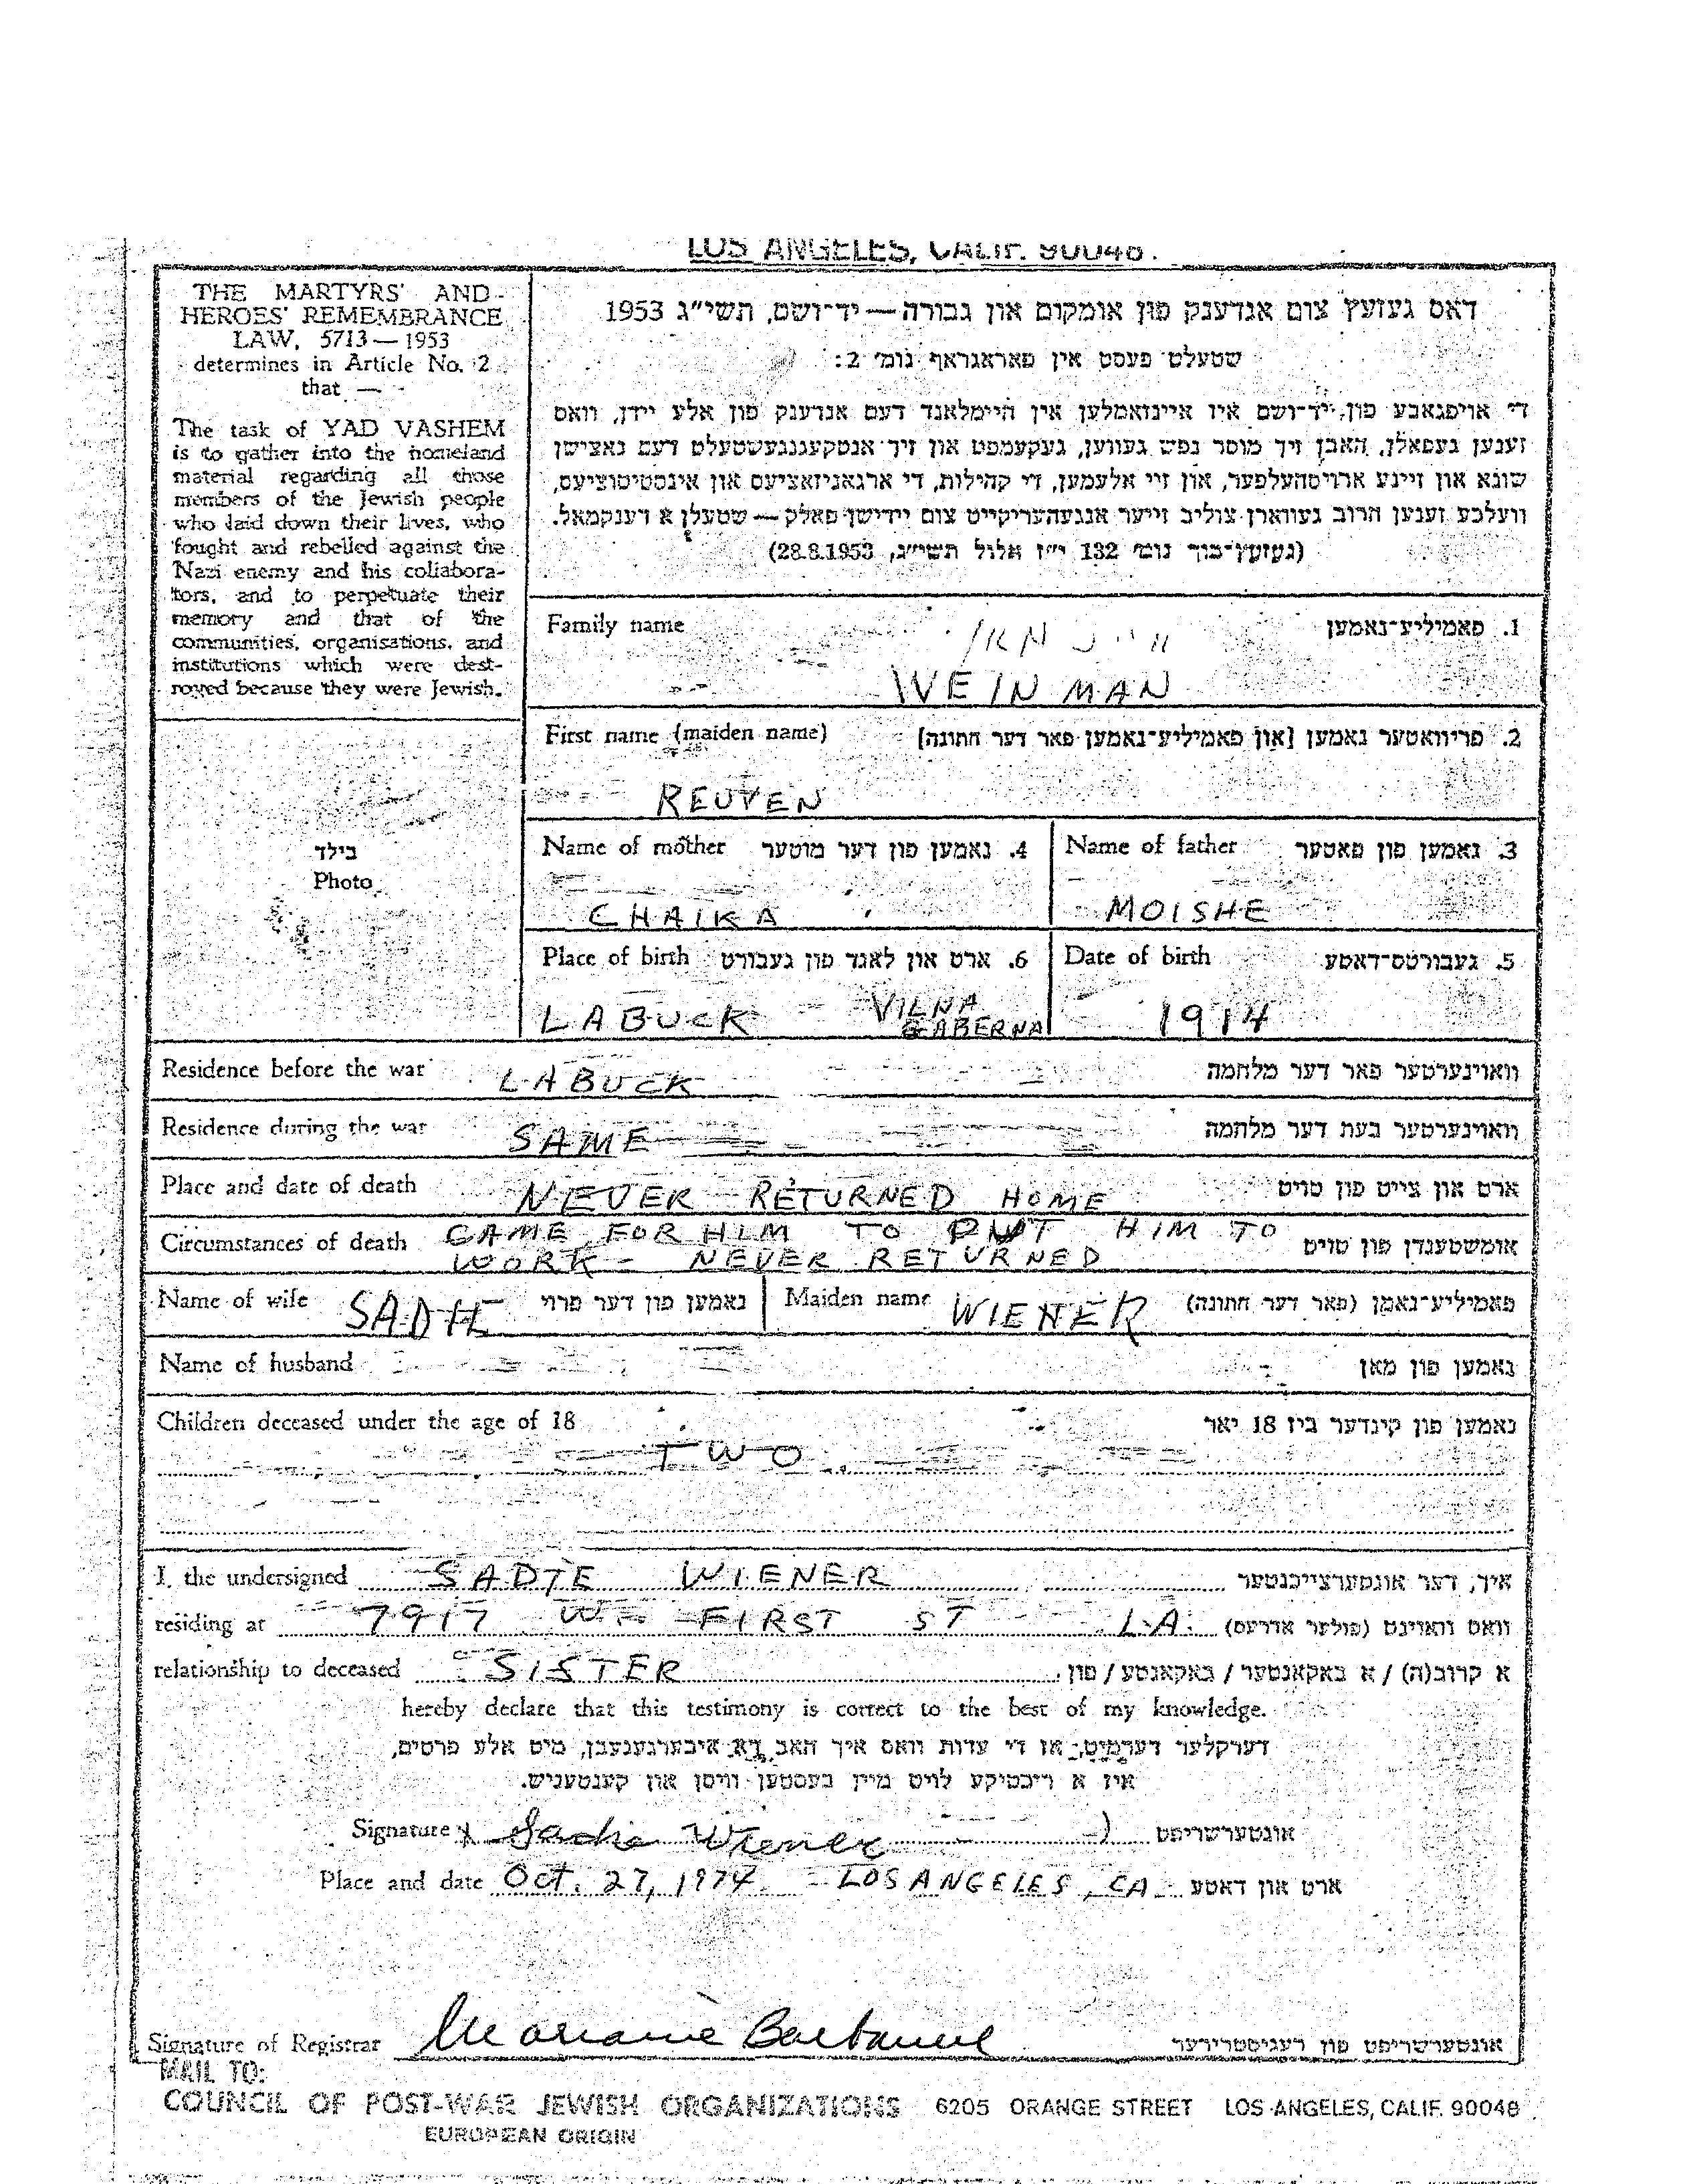 LOS ANGELES, CALIF. 90048.
THE MARTYRS' AND
HEROES' REMEMBRANCE
LAW, 5713—1953
determines in Article No. 2
that —
The task of YAD VASHEM
is to gather into the homeland
material regarding all those
members of the Jewish people
who laid down their lives, who
fought and rebelled against the
Nazi enemy and his collabora-
tors, and to perpetuate their
memory and that of the
communities, organisations, and
institutions which were dest-
royed because they were Jewish.
דאס געזעץ צום אנדענק פון אומקום און גבורה — יד־ושם, תשי״ג 1953
שטעלט פעסט אין פאראגראף נומ׳ 2:
די אויפגאבע פון יד־ושם איז איינזאמלען אין היימלאנד דעם אנדענק פון אלע יידן, וואס
זענען געפאלן, האבן זיך מוסר נפש געווען, געקעמפט און זיך אנטקעגנגעשטעלט דעם נאצישן
שונא און זיינע ארויסהעלפער, און זיי אלעמען, די קהילות, די ארגאניזאציעס און אינסטיטוציעס,
וועלכע זענען חרוב געווארן צוליב זייער אנגעהעריקייט צום יידישן פאלק — שטעלן א דענקמאל.
(געזעץ־בוך נומ׳ 132 י״ז אלול תשי״ג, 28.8.1953)
Family name 1. פאמיליע־נאמען
WEINMAN
First name (maiden name) 2. פריוואטער נאמען [און פאמיליע־נאמען פאר דער חתונה]
REUVEN
בילד
Photo
Name of mother 4. נאמען פון דער מוטער
CHAIKA
Name of father 3. נאמען פון פאטער
MOISHE
Place of birth 6. ארט און לאנד פון געבורט
LABUCK VILNA
GABERNA
Date of birth 5. געבורטס־דאטע
1914
Residence before the war LABUCK וואוינערטער פאר דער מלחמה
Residence during the war SAME וואוינערטער בעת דער מלחמה
Place and date of death NEVER RETURNED HOME ארט און צייט פון טויט
Circumstances of death CAME FOR HIM TO PUT HIM TO אומשטענדן פון טויט
WORK - NEVER RETURNED
Name of wife נאמען פון דער פרוי Maiden name WIENER פאמיליע־נאמן (פאר דער חתונה)
Name of husband נאמען פון מאן
Children deceased under the age of 18 נאמען פון קינדער ביז 18 יאר
TWO
I, the undersigned SADIE WIENER איך, דער אונטערצייכנטער
residing at 7917 W- FIRST ST L.A. וואס וואוינט (פולער אדרעס)
relationship to deceased SISTER א קרוב(ה) / א באקאנטער / באקאנטע / פון
hereby declare that this testimony is correct to the best of my knowledge.
דערקלער דערמיט, אז די עדות וואס איך האב דא איבערגעגעבן, מיט אלע פרטים,
איז א ריכטיקע לויט מיין בעסטען וויסן און קענטעניש.
Signature Sadie Wiener אונטערשריפט
Place and date Oct. 27, 1974 - LOS ANGELES, CA ארט און דאטע
Signature of Registrar אונטערשריפט פון רעגיסטרירער
MAIL TO:
COUNCIL OF POST-WAR JEWISH ORGANIZATIONS 6205 ORANGE STREET LOS ANGELES, CALIF. 90048
EUROPEAN ORIGIN